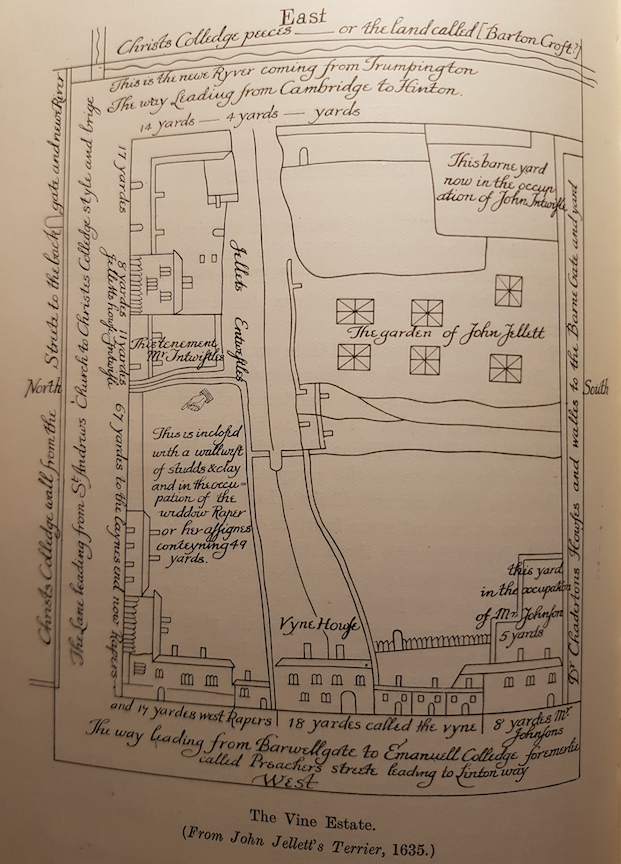 East
Christs Colledge peeces or the land called [Barton Croft?]
This is the newe Ryver coming from Trumpington
The way Leading from Cambridge to Hinton.
14 yards — 4 yards — yards
This barne yard
now in the occup
ation of John Intwifle
17 yardes
Jellets Entwifles
8 yardes 17 yardes
The garden of John Jellett
This tenement
Mr. Intwifles
North
South
Christs Colledge wall from the Streete to the back gate and new River
The Lane leading from St Andrews Church to Christes Colledge style and brige
67 yardes to the
and now Rapers
Dr Chadertons Howses and walles to the Barne Gate and yard
This is inclosd
with a wall wft
of studds & clay
and in the occu-
pation of the
widdow Raper
or her assignes
conteyning 49
yards.
this yard
in the occupation
of Mr. Johnson
5 yards
Vyne House
and 17 yardes west Rapers
18 yardes called the vyne
8 yardes Mr.
Johnsons
The way leading from Barwellgate to Emanuell Colledge foremerlie
called Preachers streete leading to Linton way
West
The Vine Estate.
(From John Jellett's Terrier, 1635.)